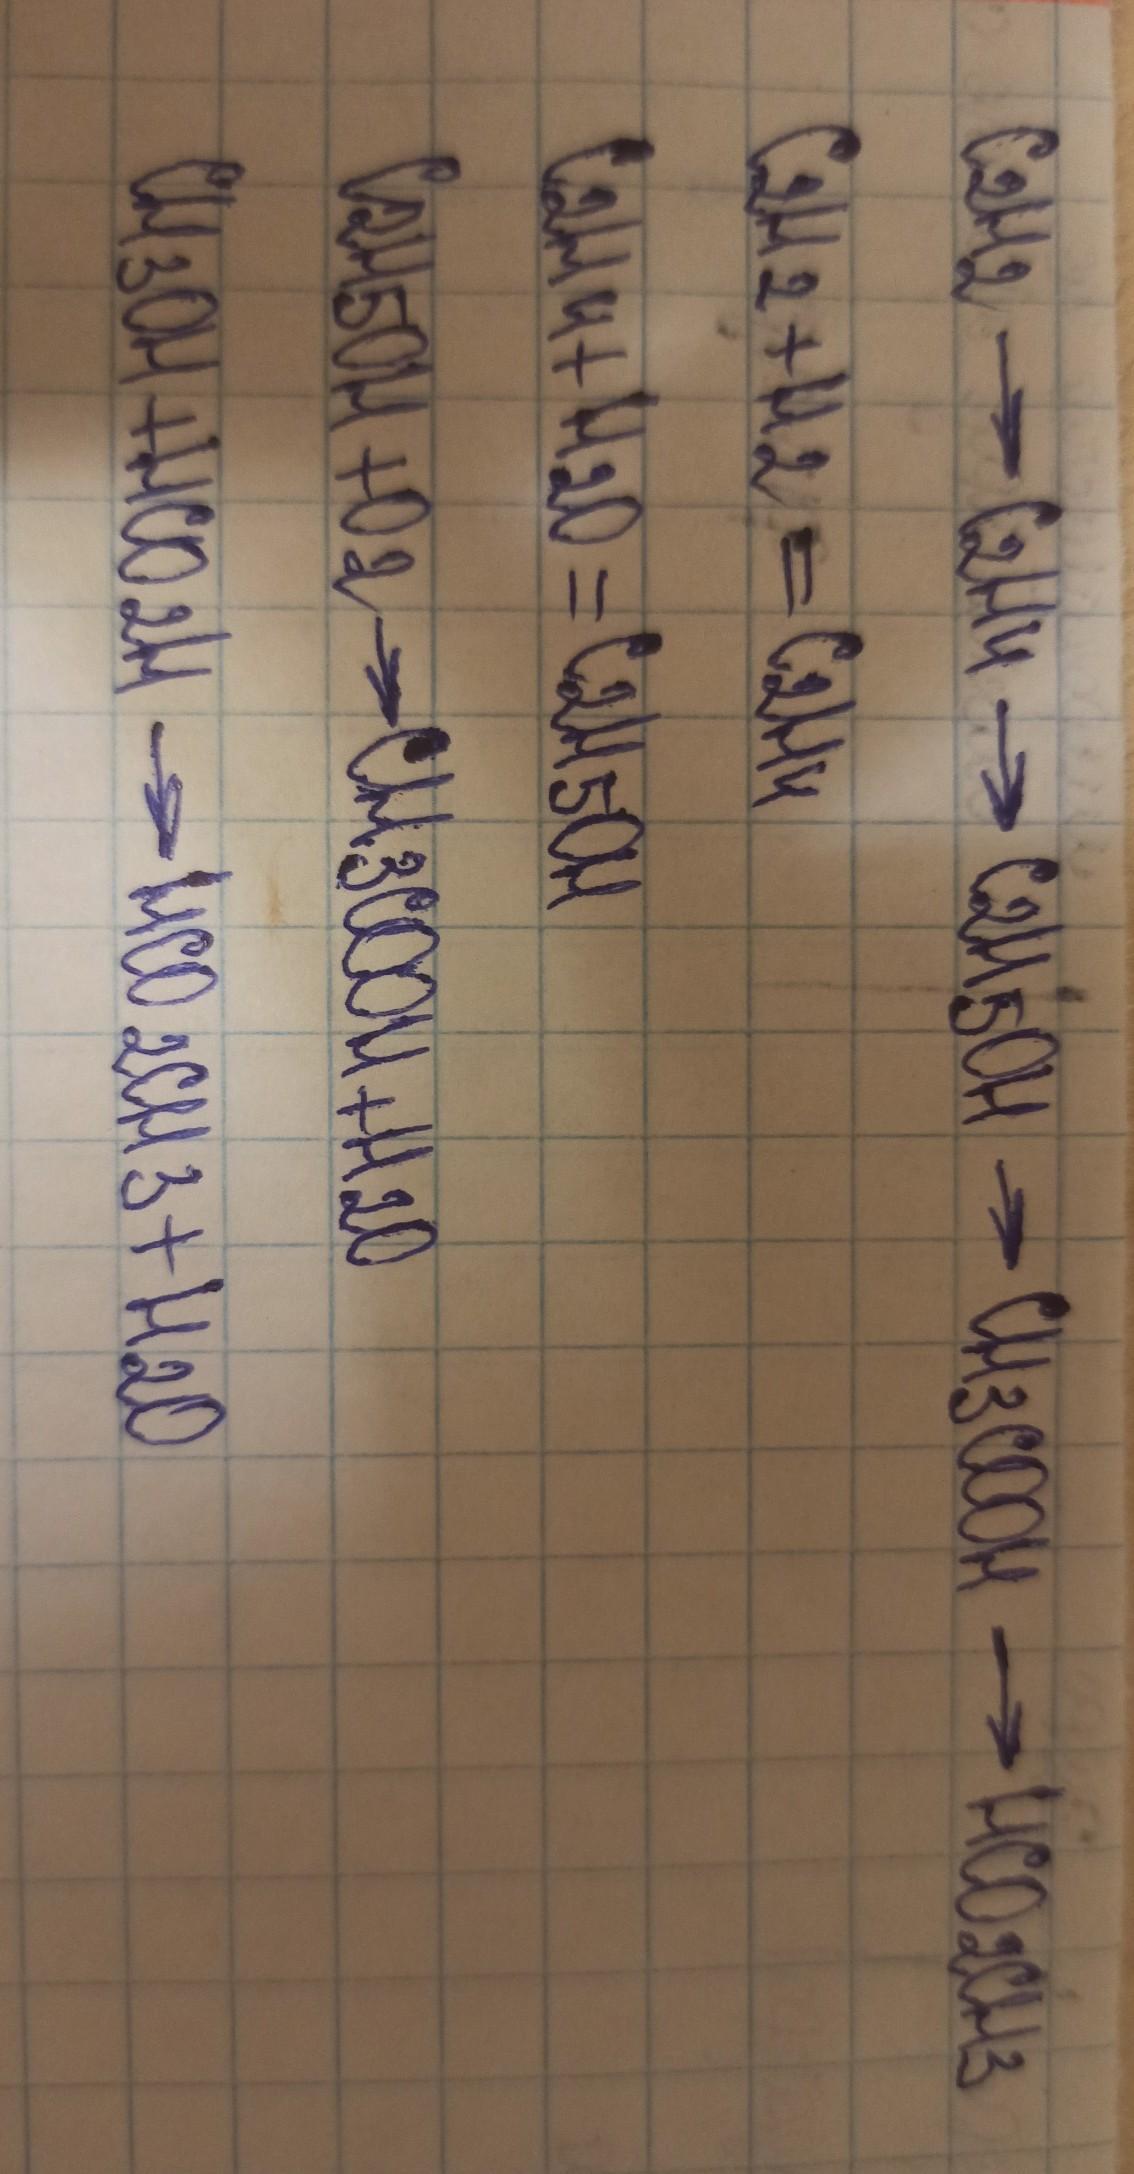 C2H2 → C2H4 → C2H5OH → CH3COOH → HCO2CH3
C2H2 + H2 = C2H4
C2H4 + H2O = C2H5OH
C2H5OH + O2 → CH3COOH + H2O
CH3OH + HCO2H → HCO2CH3 + H2O